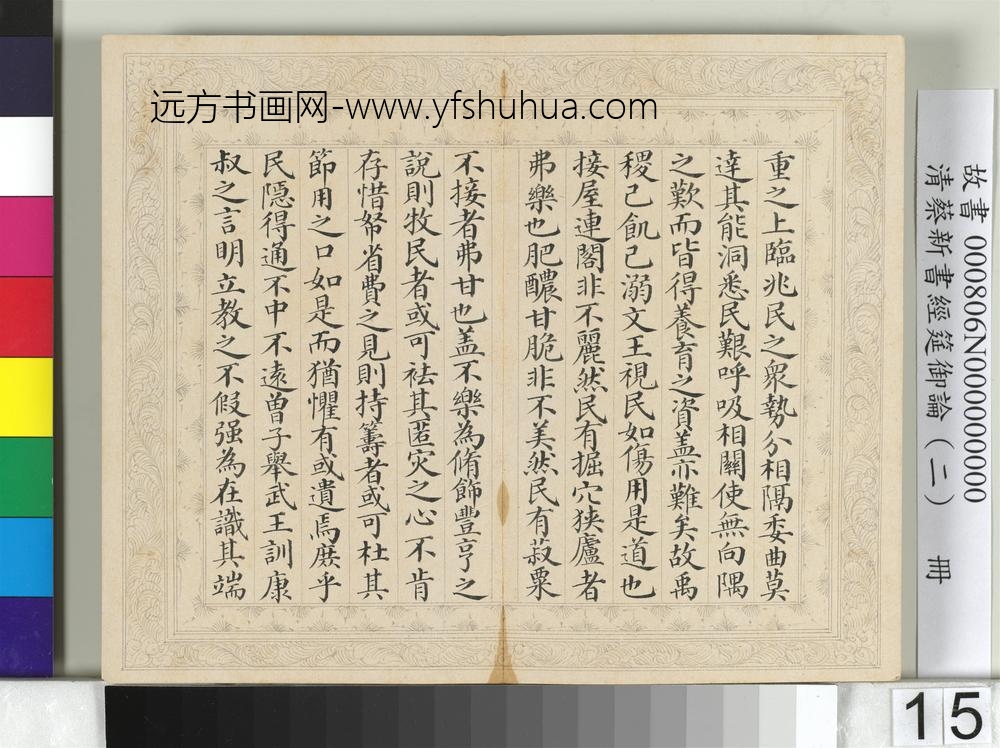 远方书画网-www.yfshuhua.com
重之上臨兆民之衆勢分相隔委曲莫
達其能洞悉民艱呼吸相關使無向隅
之歎而皆得養育之資盖亦難矣故禹
稷己飢己溺文王視民如傷用是道也
接屋連閣非不麗然民有掘穴狹廬者
弗樂也肥醲甘脆非不美然民有菽粟
不接者弗甘也盖不樂為脩飾豐亨之
說則牧民者或可袪其匿灾之心不肯
存惜帑省費之見則持籌者或可杜其
節用之口如是而猶懼有或遺焉庶乎
民隱得通不中不遠曾子舉武王訓康
叔之言明立教之不假强為在識其端
故書 000806N000000000
清蔡新書經筵御論(二) 冊
15